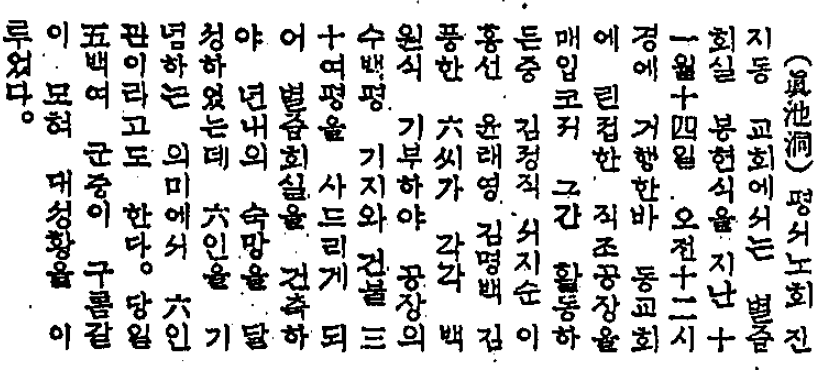 (眞池洞) 평서노회 진
지동 교회에서는 별츔
회실 봉헌식을 지난 十
一월十四일 오전十二시
경에 거행한바 동교회
에 린접한 직조공장을
매입코저 그간 활동하
든중 김정직 서지순 이
흥선 윤래영 김명백 김
풍한 六씨가 각각 백
원식 기부하야 공장의
수백평 기지와 건물 三
十여평을 사드리게 되
어 별츔회실을 건축하
야 년내의 숙망을 달
성하였는데 六인을 기
념하는 의미에서 六인
관이라고도 한다。당일
五백여 군중이 구름갈
이 모혀 대성황을 이
루었다。